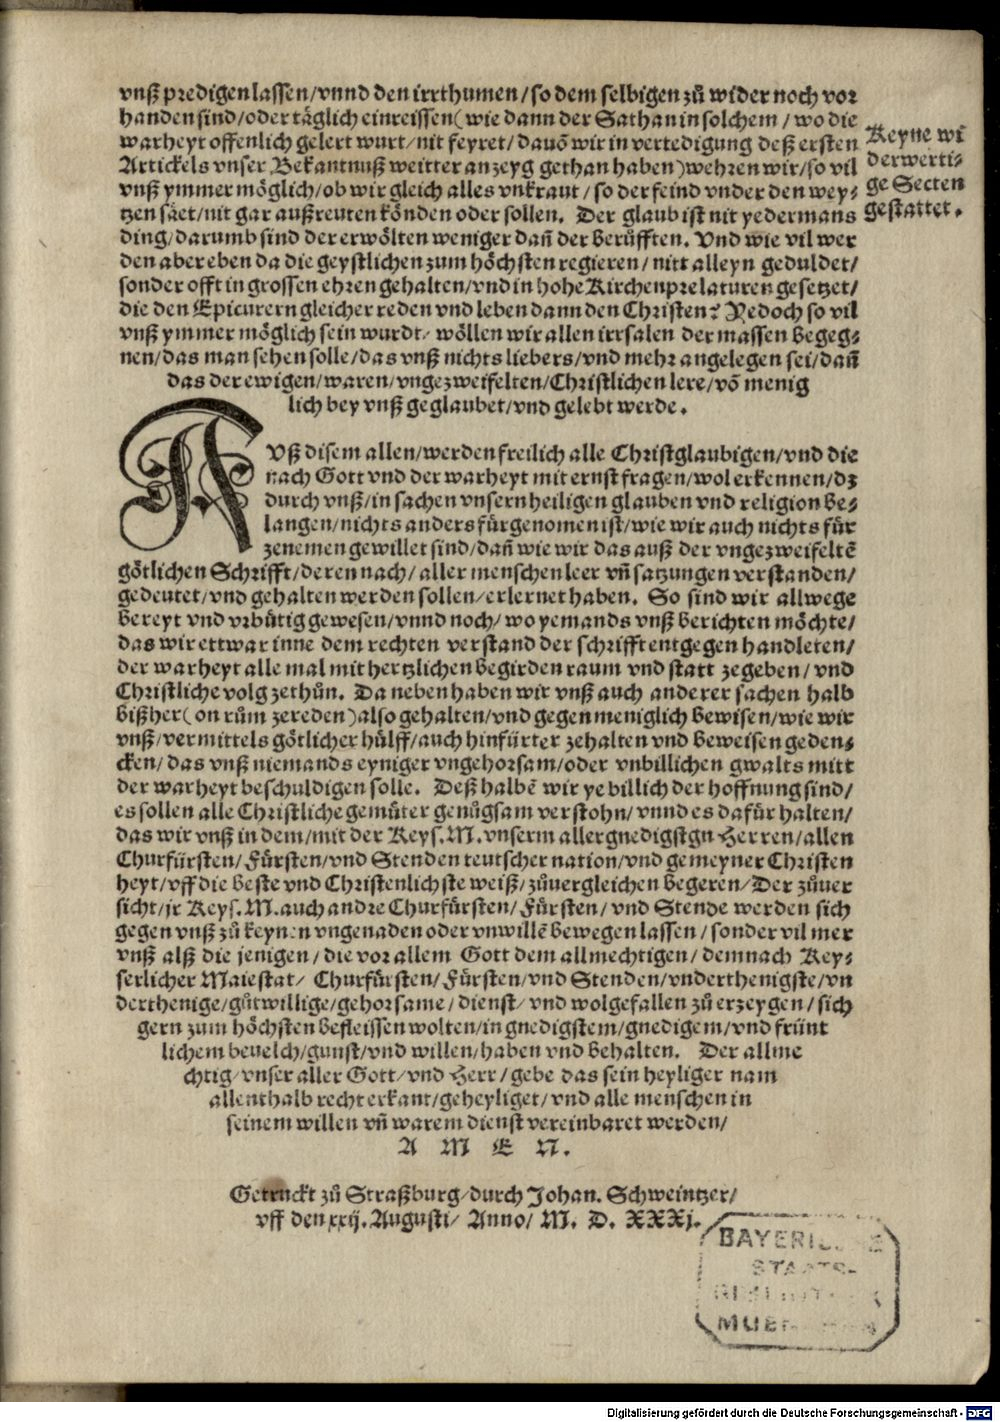 vnß predigen lassen/vnnd den irrthumen/so dem selbigen zů wider noch vor
handen sind/oder täglich einreissen(wie dann der Sathan in solchem/wo die
warheyt offenlich gelert wurt/nit feyret/dauō wir in vertedigung deß ersten
Artickels vnser Bekantnuß weitter anzeyg gethan haben)wehren wir/so vil
vnß ymmer möglich/ob wir gleich alles vnkraut/so der feind vnder den wey-
tzen säet/nit gar außreuten könden oder sollen. Der glaub ist nit yedermans
ding/darumb sind der erwölten weniger dañ der berüfften. Vnd wie vil wer
den aber eben da die geystlichen zum höchsten regieren/nitt alleyn geduldet/
sonder offt in grossen ehren gehalten/vnd in hohe Kirchenprelaturen gesetzet/
die den Epicurern gleicher reden vnd leben dann den Christen? Yedoch so vil
vnß ymmer möglich sein wurdt/wöllen wir allen irrsalen der massen begeg-
nen/das man sehen solle/das vnß nichts liebers/vnd mehr angelegen sei/dañ
das der ewigen/waren/vngezweifelten/Christlichen lere/vō menig
lich bey vnß geglaubet/vnd gelebt werde.
Keyne wi
derwerti-
ge Secten
gestattet.
AVß disem allen/werden freilich alle Christglaubigen/vnd die
nach Gott vnd der warheyt mit ernst fragen/wol erkennen/dz
durch vnß/in sachen vnsern heiligen glauben vnd religion be-
langen/nichts anders fürgenomen ist/wie wir auch nichts für
zenemen gewillet sind/dañ wie wir das auß der vngezweifeltē
götlichen Schrifft/deren nach/aller menschen leer vñ satzungen verstanden/
gedeutet/vnd gehalten werden sollen/erlernet haben. So sind wir allwege
bereyt vnd vrbütig gewesen/vnnd noch/wo yemands vnß berichten möchte/
das wir ettwar inne dem rechten verstand der schrifft entgegen handleten/
der warheyt alle mal mit hertzlichen begirden raum vnd statt zegeben/vnd
Christliche volg zethůn. Da neben haben wir vnß auch anderer sachen halb
bißher(on rům zereden)also gehalten/vnd gegen meniglich bewisen/wie wir
vnß/vermittels götlicher hülff/auch hinfürter zehalten vnd beweisen geden-
cken/das vnß niemands eyniger vngehorsam/oder vnbillichen gwalts mitt
der warheyt beschuldigen solle. Deß halbē wir ye billich der hoffnung sind/
es sollen alle Christliche gemüter genügsam verstohn/vnnd es dafür halten/
das wir vnß in dem/mit der Keys. M. vnserm allergnedigstgn Herren/allen
Churfürsten/Fürsten/vnd Stenden teutscher nation/vnd gemeyner Christen
heyt/vff die beste vnd Christenlichste weiß/zůuergleichen begeren/Der zůuer
sicht/jr Keys. M. auch andre Churfürsten/Fürsten/vnd Stende werden sich
gegen vnß zů keynen vngenaden oder vnwillē bewegen lassen/sonder vil mer
vnß alß die jenigen/die vor allem Gott dem allmechtigen/demnach Key-
serlicher Maiestat/Churfürsten/Fürsten/vnd Stenden/vnderthenigste/vn
derthenige/gůtwillige/gehorsame/dienst/vnd wolgefallen zů erzeygen/sich
gern zum höchsten befleissen wolten/in gnedigstem/gnedigem/vnd fründt
lichem beuelch/gunst/vnd willen/haben vnd behalten. Der allme
chtig/vnser aller Gott/vnd Herr/gebe das sein heyliger nam
allenthalb recht erkant/geheyliget/vnd alle menschen in
seinem willen vñ warem dienst vereinbaret werden/
A M E N.
Getruckt zů Straßburg/durch Johan. Schweintzer/
vff den xxij. Augusti/Anno/M. D. XXXj.
BAYERISCHE
STAATS-
BIBLIOTHEK
MUENCHEN
Digitalisierung gefördert durch die Deutsche Forschungsgemeinschaft - DFG